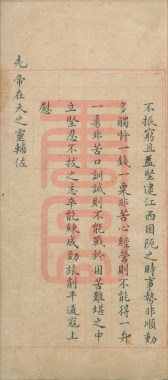 不振窮且益堅逮江西困阨之時事勢非順動
多觸忤一錢一粟非苦心經營則不能得一弁
一勇非苦口訓誡則不能戰於困苦難堪之中
立堅忍不拔之志卒能練成勁旅削平逋寇上
慰
先帝在天之靈輔佐